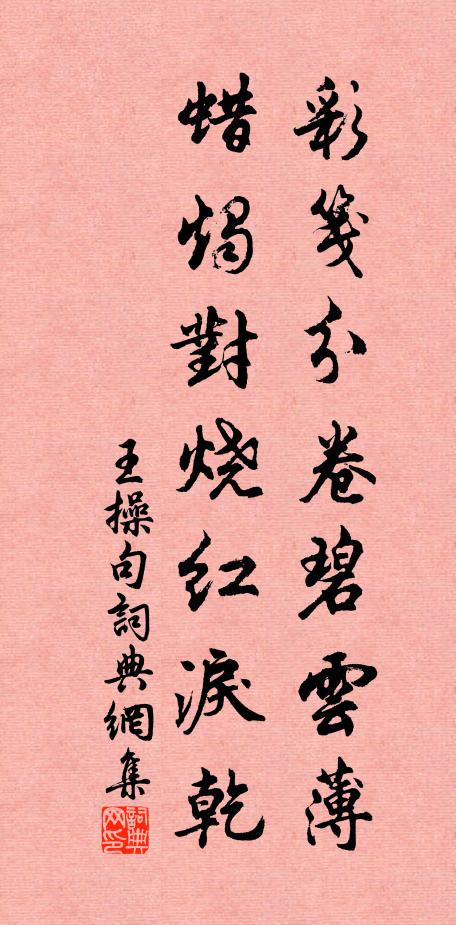 彩箋分卷碧雲薄
蜡燭對燒紅淚乾
王操句詞典網集
詞典网印